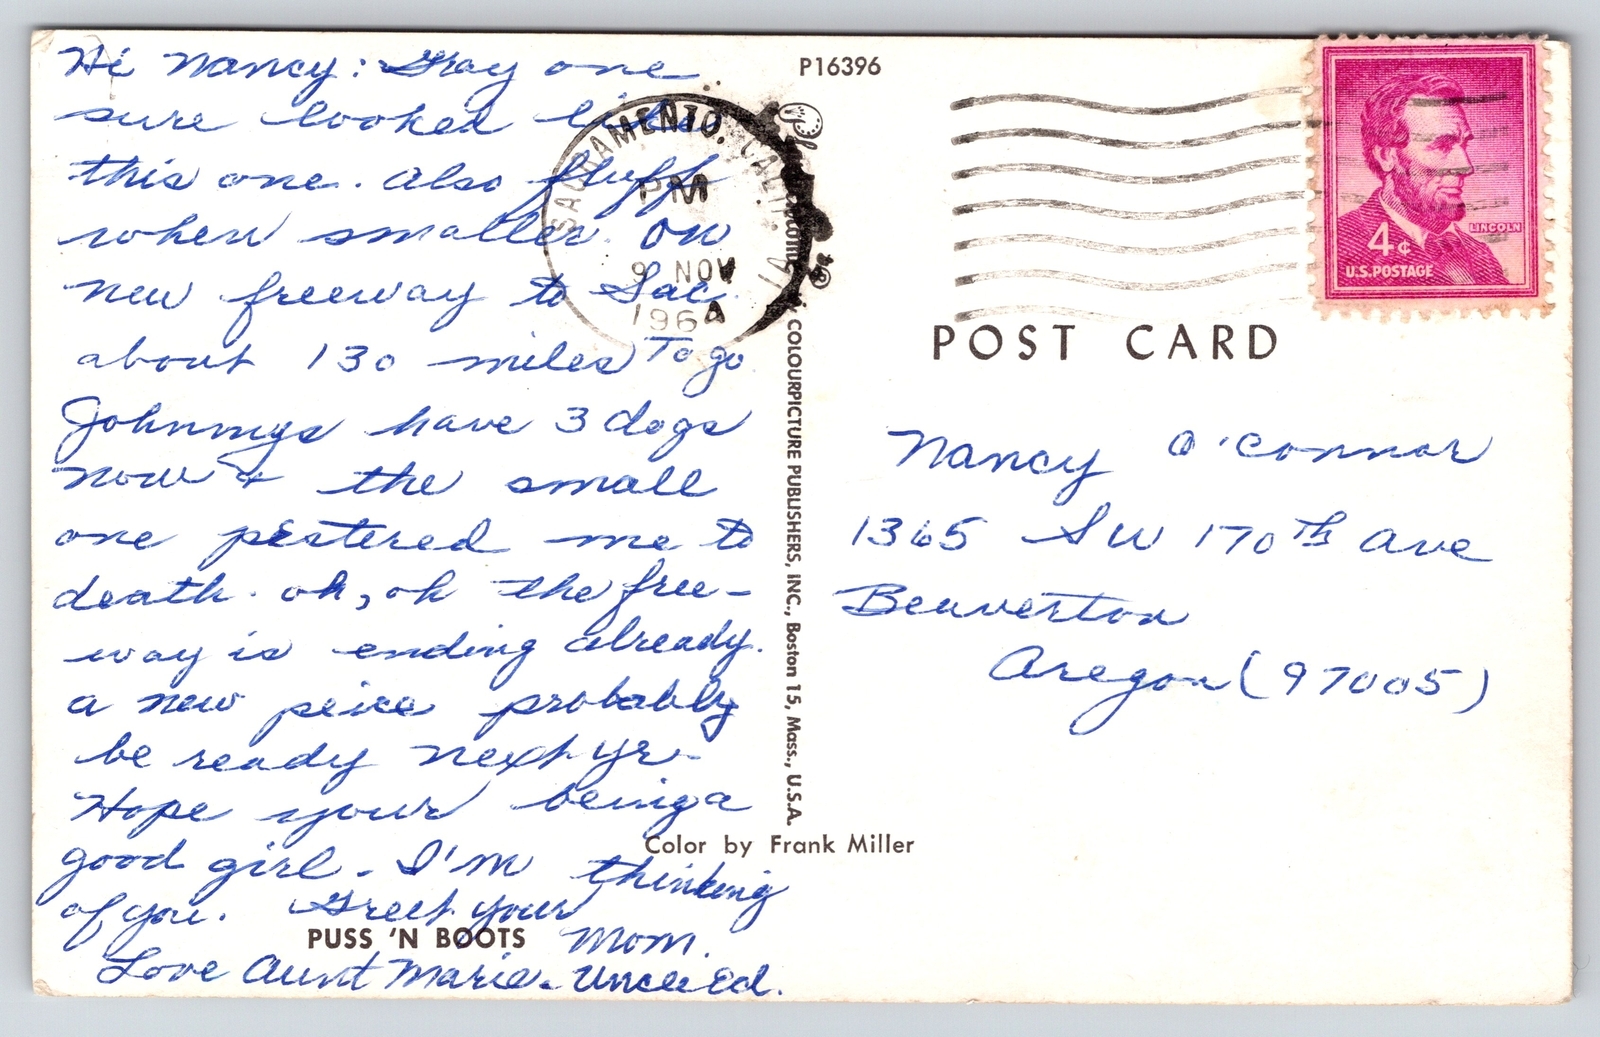 Hi Nancy: Gray one
sure looked like
this one. Also fluffy
when smaller. On
new freeway to Sac.
about 130 miles To go
Johnnnys have 3 dogs
now & the small
one pestered me to
death. oh, oh the free-
way is ending already.
a new peice probably
be ready next yr.
Hope your being a
good girl. I'm thinking
of you. Greet your
Mom.
Love Aunt Marie. Uncle Ed.
PUSS 'N BOOTS
SACRAMENTO, CALIF.
PM
9 NOV
1964
1A
P16396
Plastichrome ®
COLOURPICTURE PUBLISHERS, INC., Boston 15, Mass., U.S.A.
Color by Frank Miller
LINCOLN
4¢
U.S. POSTAGE
POST CARD
Nancy O'Connor
1365 SW 170th Ave
Beaverton
Oregon (97005)